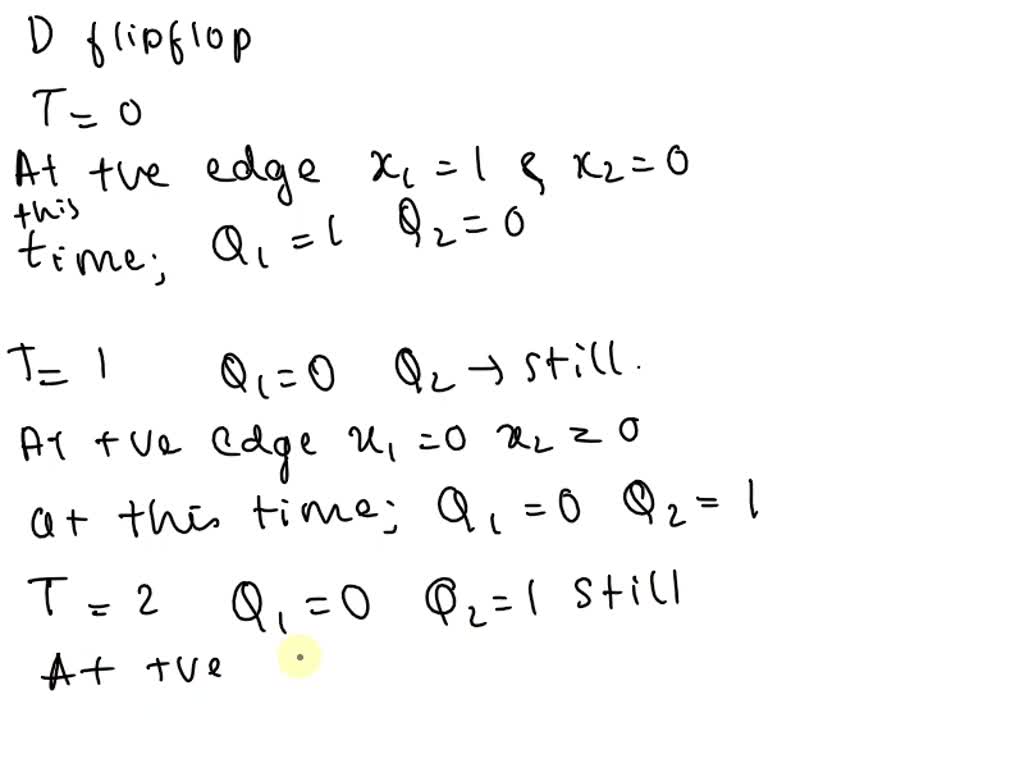 D flipflop
T = 0
At +ve edge x₁ = 1 & x₂ = 0
this
time; Q₁ = 1 Q₂ = 0
T = 1 Q₁ = 0 Q₂ → still.
At +ve edge x₁ = 0 x₂ = 0
at this time; Q₁ = 0 Q₂ = 1
T = 2 Q₁ = 0 Q₂ = 1 still
At +ve